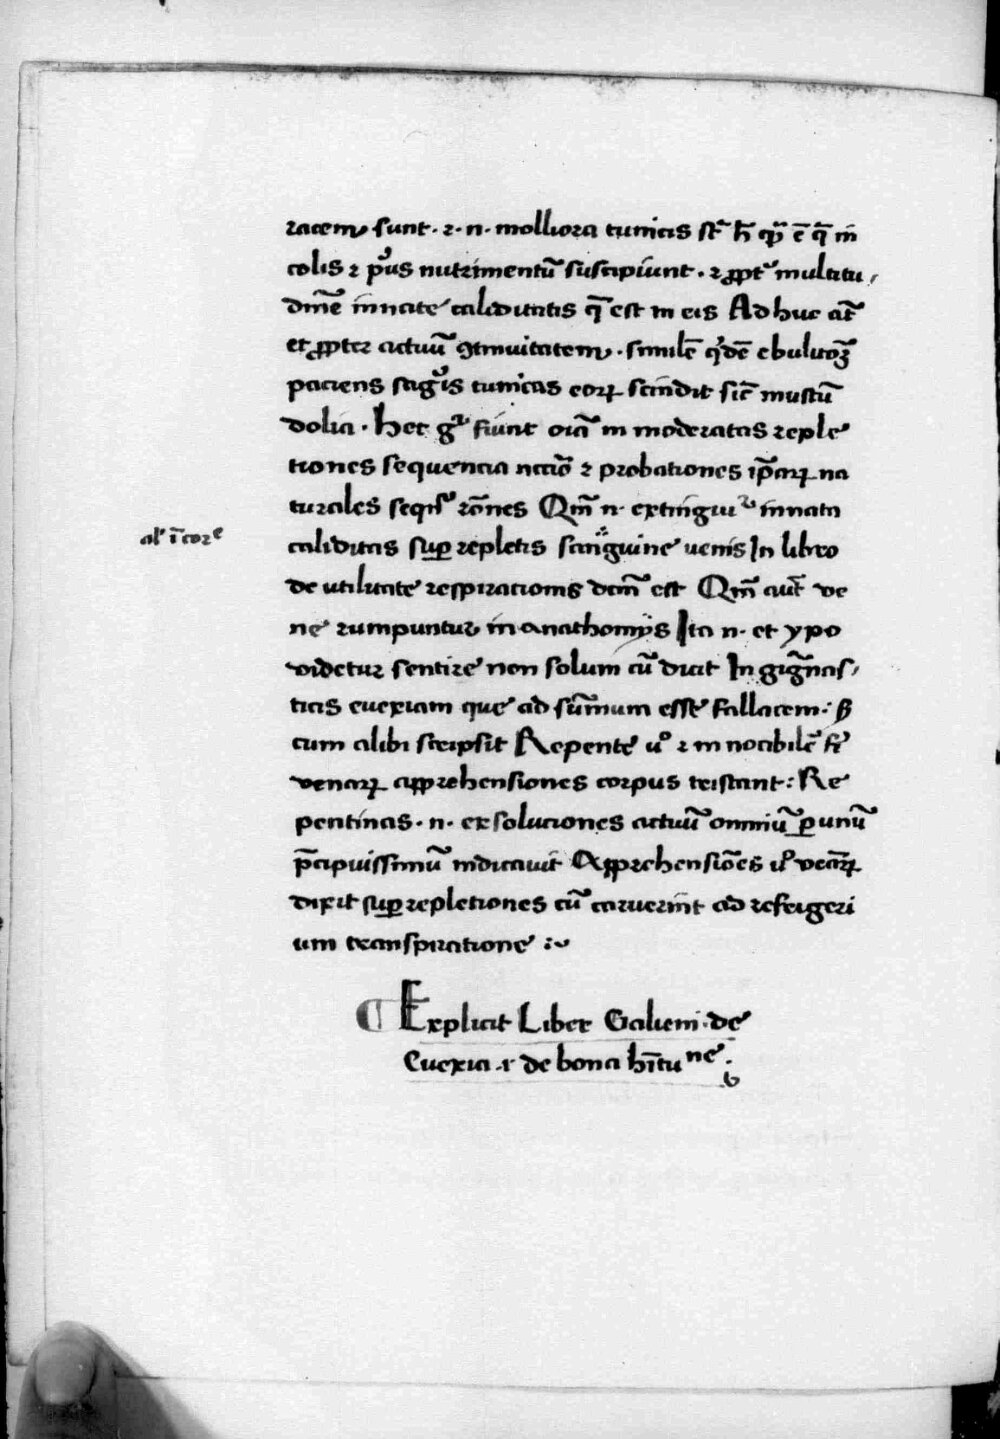 racem sunt · ⁊ · n · molliora tunicis st̄ h̄ qp̄ ē q̄ in
colis ⁊ prius nutrimentū suscipiunt · ⁊ ꝓpt̄ multitu
dinē innate caliditatis q̄ est in eis Ad huc aut̄
et ꝓpter actuū ꝯtinuitatem · similē q̇dē ebulitōꝫ
paciens sāgͥs tunicas eoꝝ scindit sic̄ mustū
dolia · Hec gͦ fiunt oīa inmoderatas reple
tiones sequencia nccīo ⁊ probationes ip̄aꝝ na
turales seqͥſ rōnes Qm̄ n · extinguiͬ innata
al' ī core
caliditas suꝑ repletis sanguine venis In libro
de utilitate respirationis dcm̄ est Qm̄ aut̄ ve
ne rumpuntur in anathomijs Ita n · et ypo
videtur sentire non solum cū dicit In gign̄as
ticis euexiam que ad sūmum esse fallacem : ẞ
cum alibi scripsit Repente uͦ ⁊ innocibilē
venaꝝ apprehensiones corpus tristant : Re
pentinas · n · exsoluciones actuū omniū ꝑ unū
p̄cipuissimū indicauit Apprehensiōes uͦ venaꝝ
dixit suꝑ repletiones cū caruerint ad refrigeri
um transpiratione :~
¶ Explicit Liber Galieni · de
Euexia · ⁊ de bona h̄itu ne ·